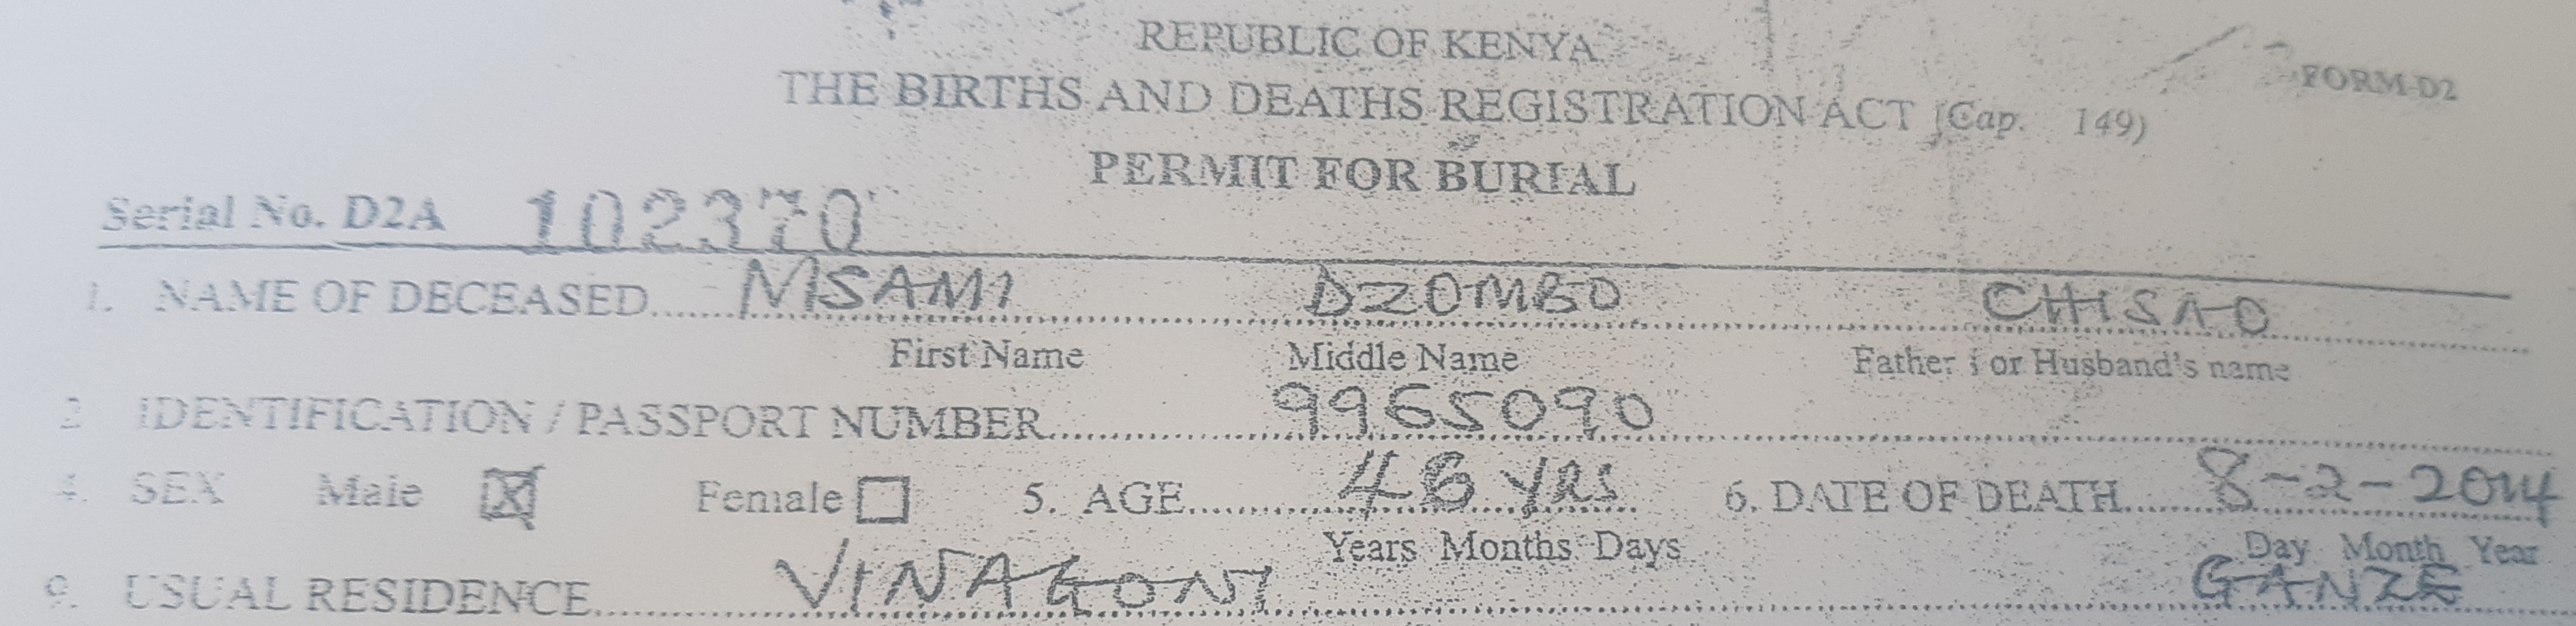 REPUBLIC OF KENYA
FORM D2
THE BIRTHS AND DEATHS REGISTRATION ACT (Cap. 149)
PERMIT FOR BURIAL
Serial No. D2A 102370
1. NAME OF DECEASED MSAMI DZOMBO CHISAO
First Name Middle Name Father's or Husband's name
2 IDENTIFICATION / PASSPORT NUMBER 9965090
4. SEX Male ☒ Female ☐ 5. AGE 46 yrs 6. DATE OF DEATH 8-2-2014
Years Months Days Day Month Year
9. USUAL RESIDENCE VINAGONI GANZE